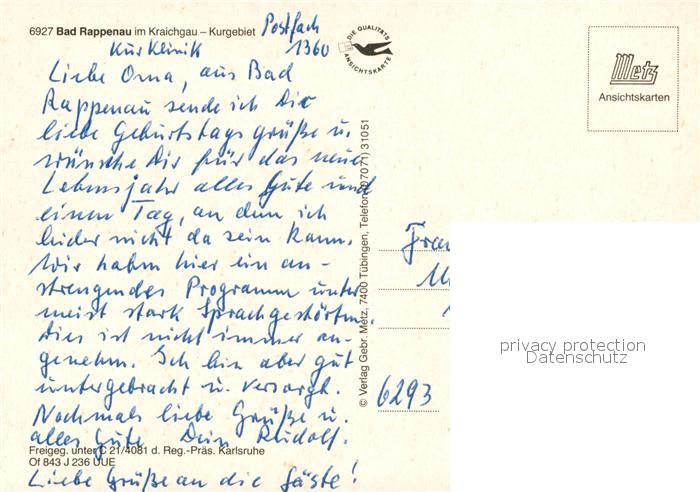 6927 Bad Rappenau im Kraichgau – Kurgebiet
Postfach
1360
Kurklinik
DIE QUALITÄTS
ANSICHTSKARTE
Metz
Ansichtskarten
Liebe Oma, aus Bad
Rappenau sende ich Dir
liebe Geburtstagsgrüße u.
wünsche Dir für das neue
Lebensjahr alles Gute und
einen Tag, an dem ich
leider nicht da sein kann.
Wir haben hier ein an-
strengendes Programm unter
meist stark Sprachgestörten.
Dies ist nicht immer an-
genehm. Ich bin aber gut
untergebracht u. versorgt.
Nochmals liebe Grüße u.
alles Gute Dein Rudolf.
Freigeg. unter C 21/4081 d. Reg.-Präs. Karlsruhe
Of 843 J 236 UUE
Liebe Grüße an die Gäste!
© Verlag Gebr. Metz, 7400 Tübingen, Telefon (0 70 71) 3 10 51
Frau
6293
privacy protection
Datenschutz